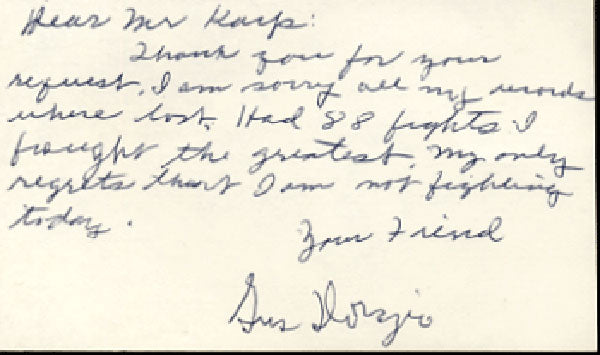 Dear Mr Karp:
Thank you for your
request. I am sorry all my records
where lost. Had 88 fights. I
fought the greatest. My only
regrets that I am not fighting
today.
Your Friend
Gus Dorazio